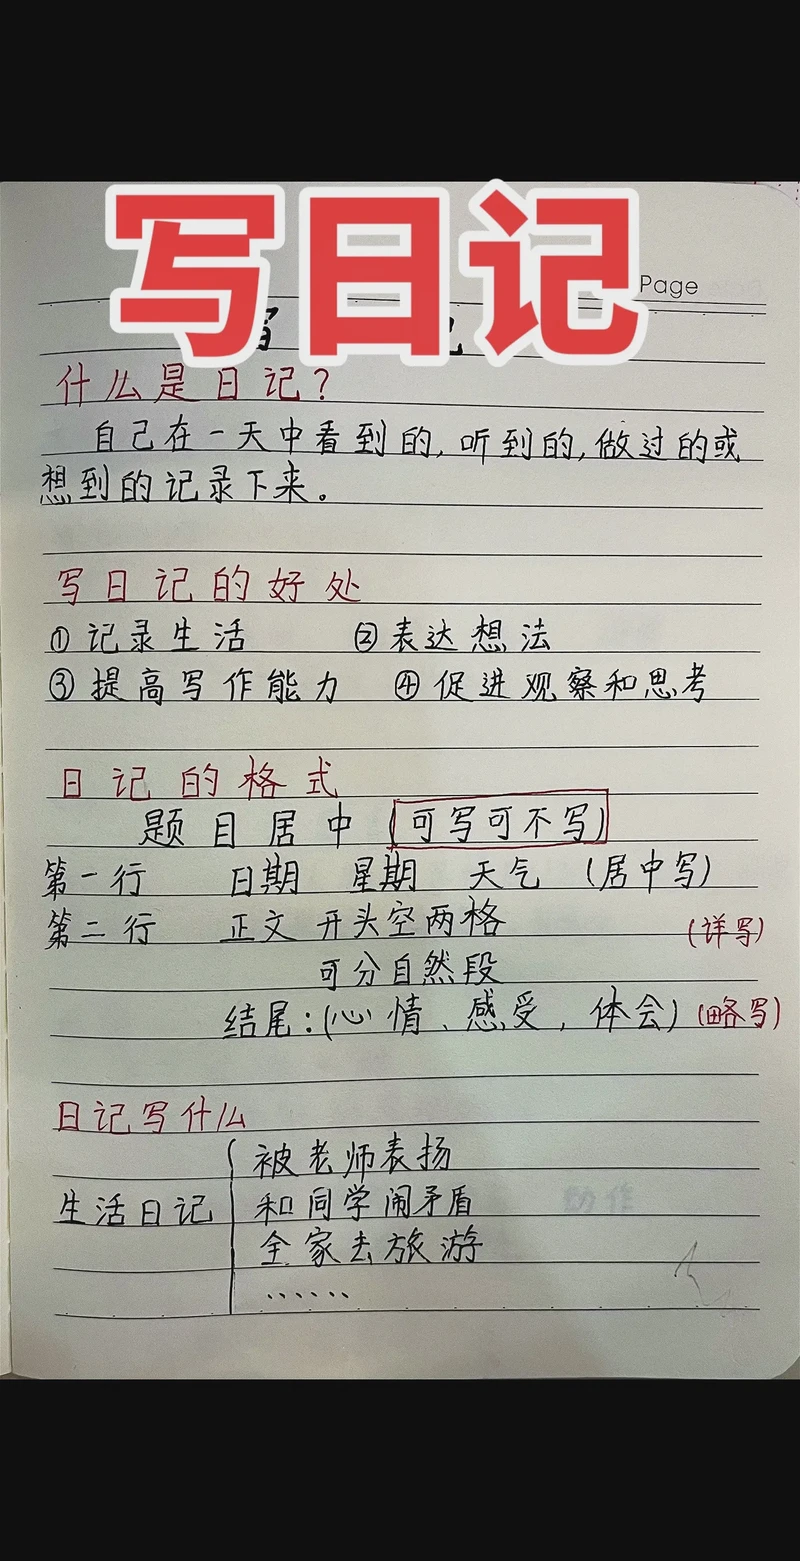 写日记
Page
什么是日记？
自己在一天中看到的,听到的,做过的或
想到的记录下来。
写日记的好处
① 记录生活 ② 表达想法
③ 提高写作能力 ④ 促进观察和思考
日记的格式
题目居中 (可写可不写)
第一行 日期 星期 天气 (居中写)
第二行 正文 开头空两格 (详写)
可分自然段
结尾:(心情、感受,体会) (略写)
日记写什么
被老师表扬
生活日记 和同学闹矛盾
全家去旅游
......